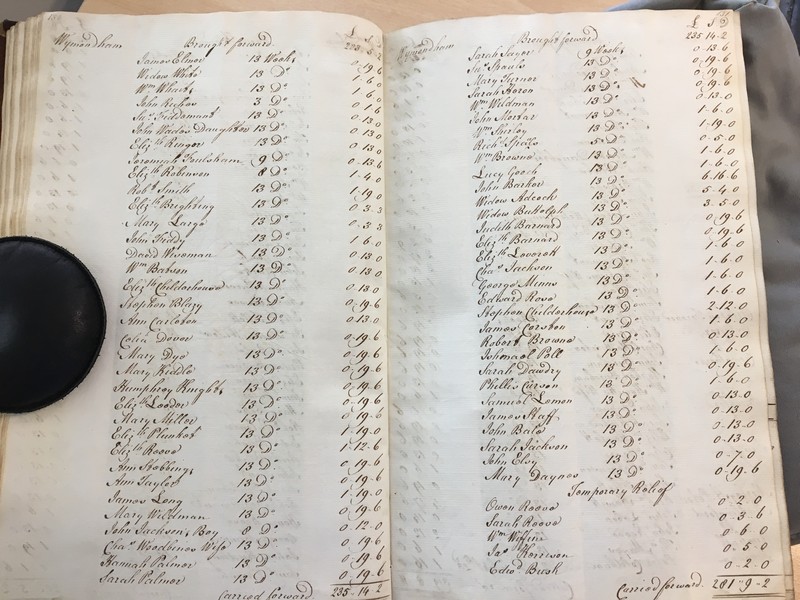 Wymondham Brought forward
£ S D
James Elmer 13 Weeks 0-19-6
Widow White 13 Do 1-6-0
Wm White 13 Do 1-6-0
John 3 Do 0-1-6
13 Do 0-13-0
John Wades Daughter 13 Do 0-13-0
Eliz:th Ringer 13 Do 0-13-0
Jeremiah Foulsham 9 Do 0-13-6
Eliz:th Robinson 8 Do 1-4-0
Robt Smith 13 Do 1-19-0
Eliz:th 13 Do 0-3-3
Mary Large 13 Do 0-3-3
John Feddy 13 Do 1-6-0
David Wiseman 13 Do 0-13-0
Wm 13 Do 0-13-0
Eliz:th Childerhouse 13 Do 0-13-0
Stephen Blazy 13 Do 0-19-6
Ann Carleton 13 Do 0-13-0
Dover 13 Do 0-19-6
Mary Dye 13 Do 0-19-6
Mary Kiddle 13 Do 0-19-6
Humphrey Knights 13 Do 0-19-6
Eliz:th Loader 13 Do 0-19-6
Mary Miller 13 Do 0-19-6
Eliz:th Plunket 13 Do 1-19-0
Eliz:th Reeve 13 Do 1-12-6
Ann Stebbings 13 Do 0-19-6
Ann Taylor 13 Do 0-19-6
James Long 13 Do 1-19-0
Mary Wildman 13 Do 0-19-6
John Jacksons Boy 8 Do 0-12-0
Chas Woodbines Wife 13 Do 0-19-6
Hannah Palmer 13 Do 0-19-6
Sarah Palmer 13 Do 0-19-6
Carried forward 235-14-2
Wymondham Brought forward
£ S D
235-14-2
Sarah Sayer 9 Weeks 0-13-6
13 Do 0-19-6
Mary Turner 13 Do 0-19-6
Sarah Heron 13 Do 0-19-6
Wm Wildman 13 Do 0-13-0
John Morter 13 Do 1-6-0
Wm Shirley 13 Do 1-19-0
Richd 5 Do 0-5-0
Wm Browne 13 Do 1-6-0
Lucy Gooch 13 Do 1-6-0
John Barker 13 Do 6-16-6
Widow Adcock 13 Do 5-4-0
Widow Butolph 13 Do 3-5-0
Judith Barnard 13 Do 0-19-6
Eliz:th Barnard 13 Do 0-19-6
Eliz:th Loverok 13 Do 1-6-0
Chas Jackson 13 Do 1-6-0
George Minns 13 Do 1-6-0
Edward Rose 13 Do 1-6-0
Stephen Childerhouse 13 Do 2-12-0
James Corston 13 Do 1-6-0
Robert Browne 13 Do 0-13-0
Pell 13 Do 1-6-0
Sarah Dawdry 13 Do 0-19-6
Phillis Curson 13 Do 1-6-0
Samuel Lemon 13 Do 0-13-0
James Staff 13 Do 0-13-0
John Bale 13 Do 0-13-0
Sarah Jackson 13 Do 0-13-0
John Elsy 13 Do 0-7-0
Mary Daynes 13 Do 0-19-6
Temporary Relief
Owen Reeve 0-2-0
Sarah Reeve 0-3-6
Wm Wiffin 0-6-0
Jas Howison 0-5-0
Edwd Bush 0-2-0
Carried forward 281-9-2